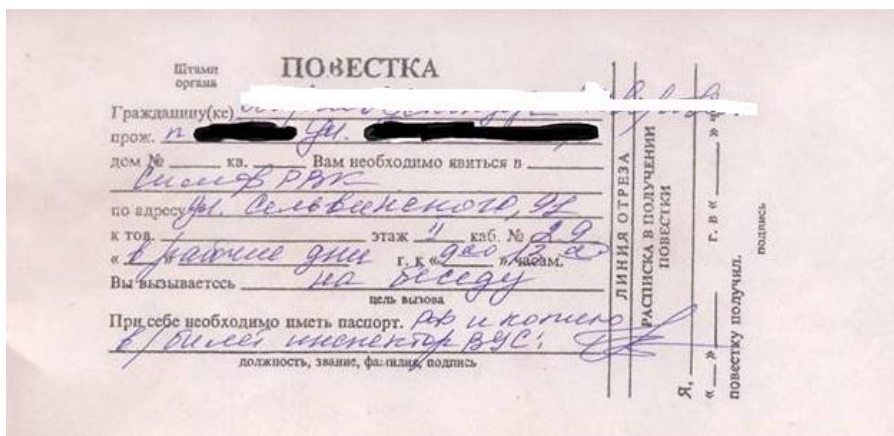 Штамп
органа
ПОВЕСТКА
Гражданину(ке)
прож. п ул.
дом № кв. Вам необходимо явиться в
Симф РВК
по адресу ул. Сельвинского,
к тов. этаж каб. № 29
« в рабочие дни г. к « 900 » часам.
Вы вызываетесь на беседу
цель вызова
При себе необходимо иметь паспорт. РФ и копию
в/билет инспектор ВУС,
должность, звание, фамилия, подпись
ЛИНИЯ ОТРЕЗА
РАСПИСКА В ПОЛУЧЕНИИ
ПОВЕСТКИ
Я,
« » г. в « » ч
повестку получил.
подпись